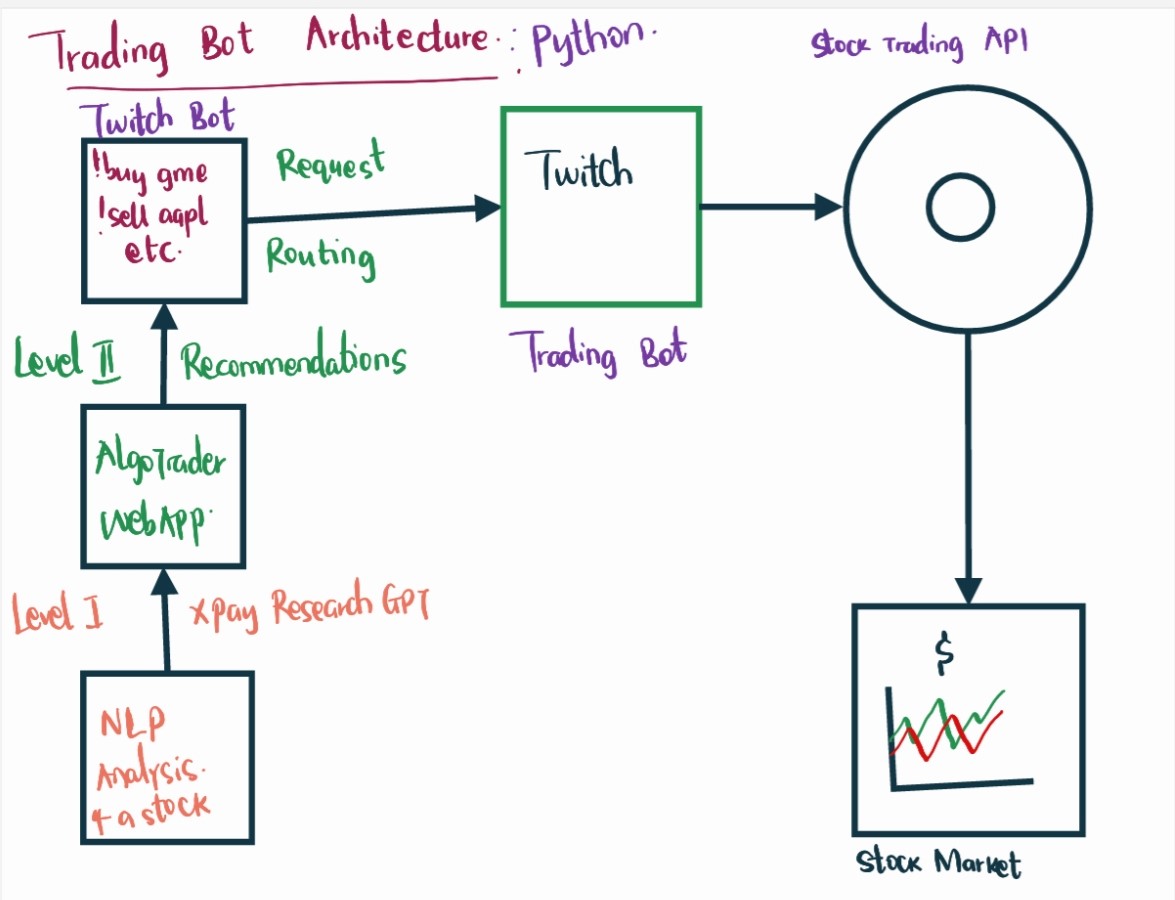 Trading Bot Architecture : Python.
Stock Trading API
Twitch Bot
!buy gme
!sell aapl
etc.
Request
Routing
Twitch
Trading Bot
Level II
Recommendations
AlgoTrader
WebApp.
Level I
XPay Research GPT
NLP
Analysis.
4 a stock
$
Stock Market